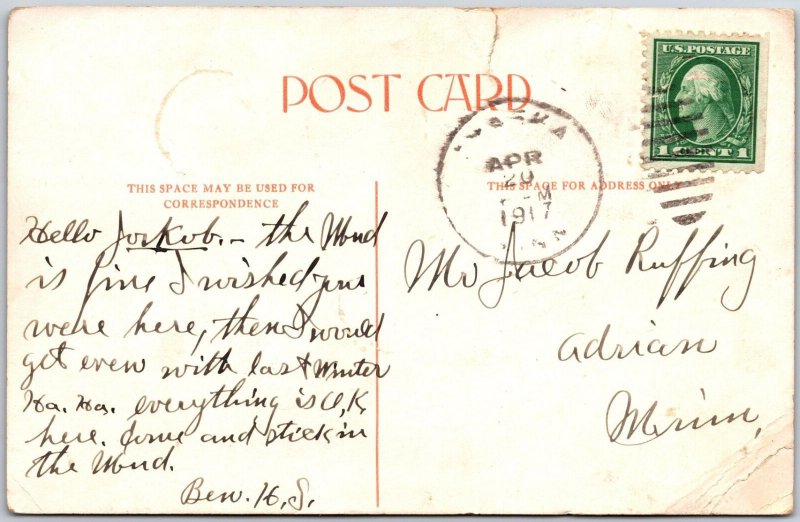 POST CARD
U.S. POSTAGE
1 CENT 1
APR
20
M
1917
MINN
THIS SPACE MAY BE USED FOR
CORRESPONDENCE
THIS SPACE FOR ADDRESS ONLY
Hello Jorkob.- the Mud
is fine I wished you
were here, then I would
get even with last Winter
Ha. Ha. everything is O,K,
here. Come and stick in
the Mud.
Ben. H. S.
Mr Jacob Ruffing
Adrian
Minn,